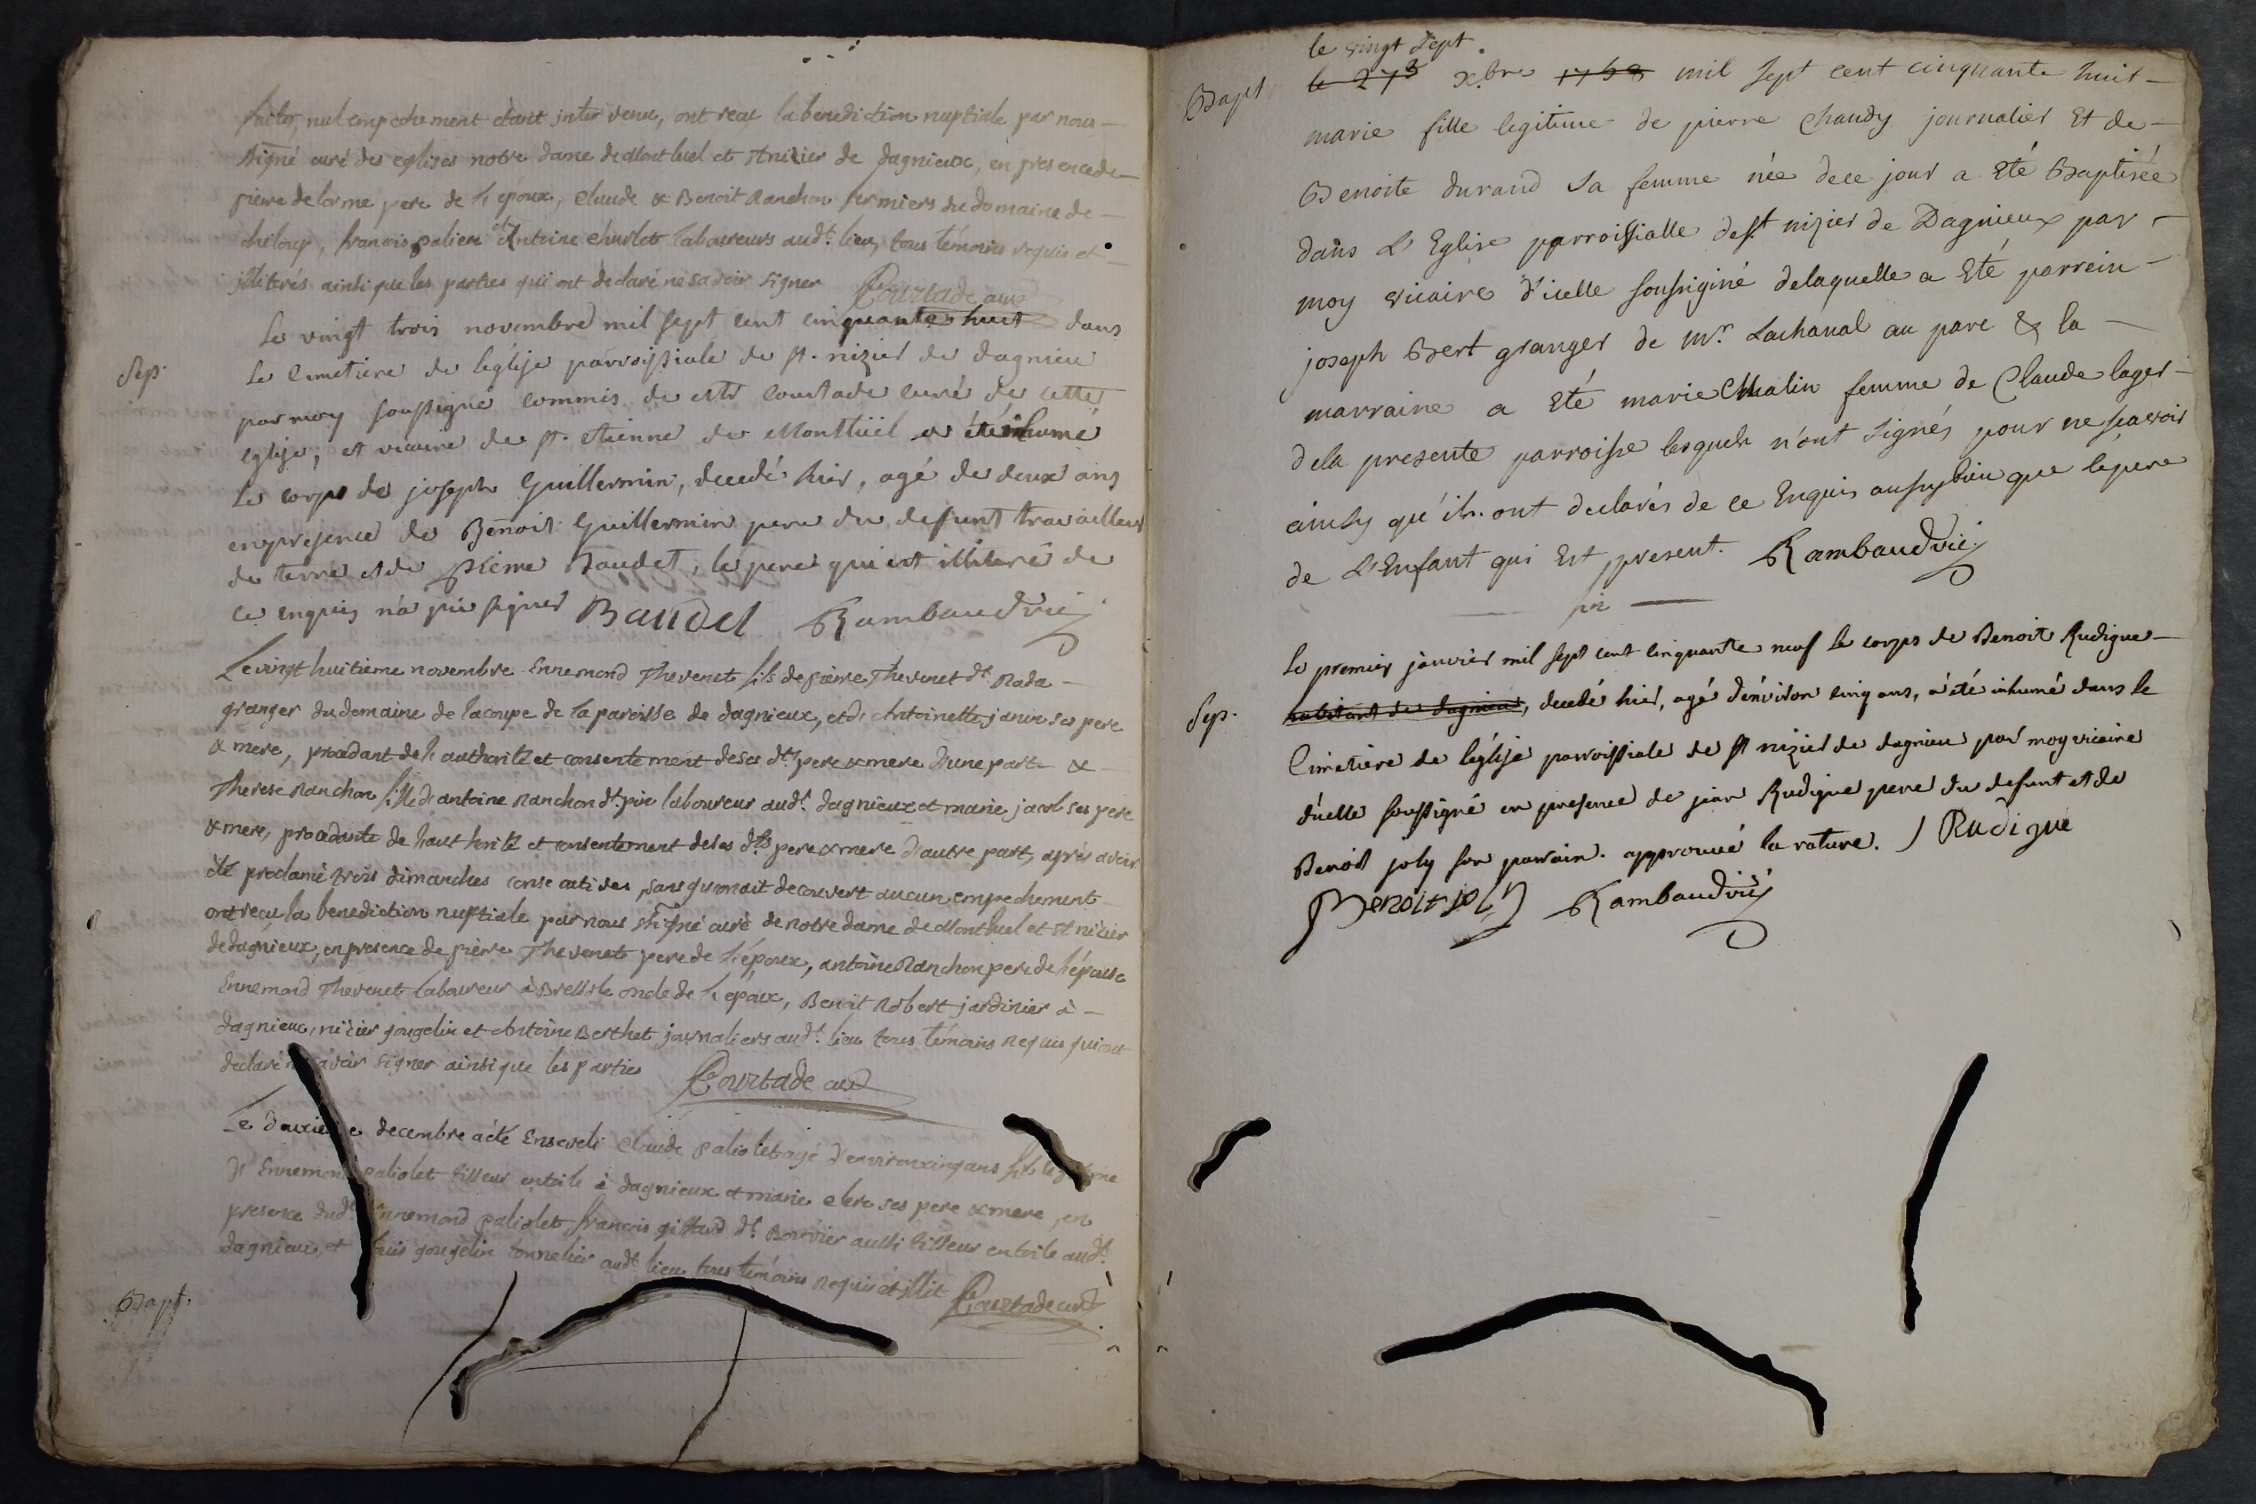 faites, nul empechement etant inter venu, ont recu la benediction nuptiale par nous
signé curé des eglises notre dame de Montluel et st nizier de dagnieux, en presence de
pierre delorme pere de l'epoux, claude & Benoit Ranchon fermiers du domaine de
chiloup, francois palien et Antoine churlet laboureurs aud.t lieu, tous témoins requis et
illiterés ainsi que les parties qui ont declaré ne savoir signer Courtade curé
Sep.
Le vingt trois novembre mil sept cent cinquante huit dans
le Cimetiere de leglise parroissiale de st. nizier de dagnieu
par moy soussigné commis de Mr courtade curé de cette
eglise, et vicaire de st. etienne de Montluël a été inhumé
le corps de joseph Guillermin, decedé hier, agé de deux ans
en presence de Benoit Guillermin pere du defunt travailleur
de terre et de pierre Baudet, le pere qui est illiteré de
ce enquis n'a pu signer Baudet Rambaud vic.
Le vingt huitieme novembre Ennemond Thevenet fils de pierre Thevenet d.t Nada
granger du domaine de la coupe de la paroisse de dagnieux, et d'Antoinette janin ses pere
& mere, procedant de l'authorité et consentement de ses d.ts pere & mere d'une part &
Therese Ranchon fille d'antoine Ranchon d.t pie laboureur aud.t dagnieux et marie jacob ses pere
& mere, procedante de l'aut horité et consentement de ses d.ts pere & mere d'autre part, aprés avoir
été proclamé trois dimanches consecutives sans qu'on ait decouvert aucun empechement
ont recu la benediction nuptiale par nous signé curé de notre dame de Montluel et st nizier
de dagnieux, en presence de pierre Thevenet pere de l'époux, antoine Ranchon pere de l'épouse
Ennemond Thevenet laboureur à Bressole oncle de l'epoux, Benoit Robert jardinier à
dagnieux, nizier gougelin et Antoine Berthet journaliers aud.t lieu tous témoins requis qui ont
declaré ne savoir signer ainsi que les parties Courtade curé
Le deuxieme decembre a été Enseveli claude paliolet agé d'environ cinq ans fils legitime
d'Ennemond paliolet tisseur en toile à dagnieux et marie clerc ses pere & mere, en
presence dud.t Ennemond paliolet francois giffard d.t Bouvier aussi tisseur en toile aud.t
dagnieux, et gougelin tonnelier aud.t lieu tous témoins requis et illit Courtade curé
Bapt.
le vingt sept
Bapt. le 27e x.bre 1758 mil sept cent cinquante huit
marie fille legitime de pierre Chaudy journalier Et de
Benoite durand sa femme née de ce jour a Eté Baptisée
dans L'Eglise parroissialle de st nizier de Dagnieux par
moy vicaire d'icelle soussigné de laquelle a Eté parrein
joseph Bert granger de mr. Lachanal au parc & la
marraine a Eté marie Chatin femme de Claude lager
de la presente parroisse lesquels n'ont signés pour ne sçavoir
ainsy qu'ils ont declarés de ce Enquis aussy bien que le pere
de L'Enfant qui Est present. Rambaud vic.
fin
Le premier janvier mil sept cent cinquante neuf le corps de Benoit Rudigue
Sep. habitant de dagnieux, decedé hier, agé d'environ cinq ans, a été inhumé dans le
Cimetiere de l'église parroissiale de st nizier de dagnieu par moy vicaire
d'icelle soussigné en presence de jean Rudigue pere du defunt et de
Benoit joly son parrain. approuvé la rature. J Rudigue
Benoit joly Rambaud vic.